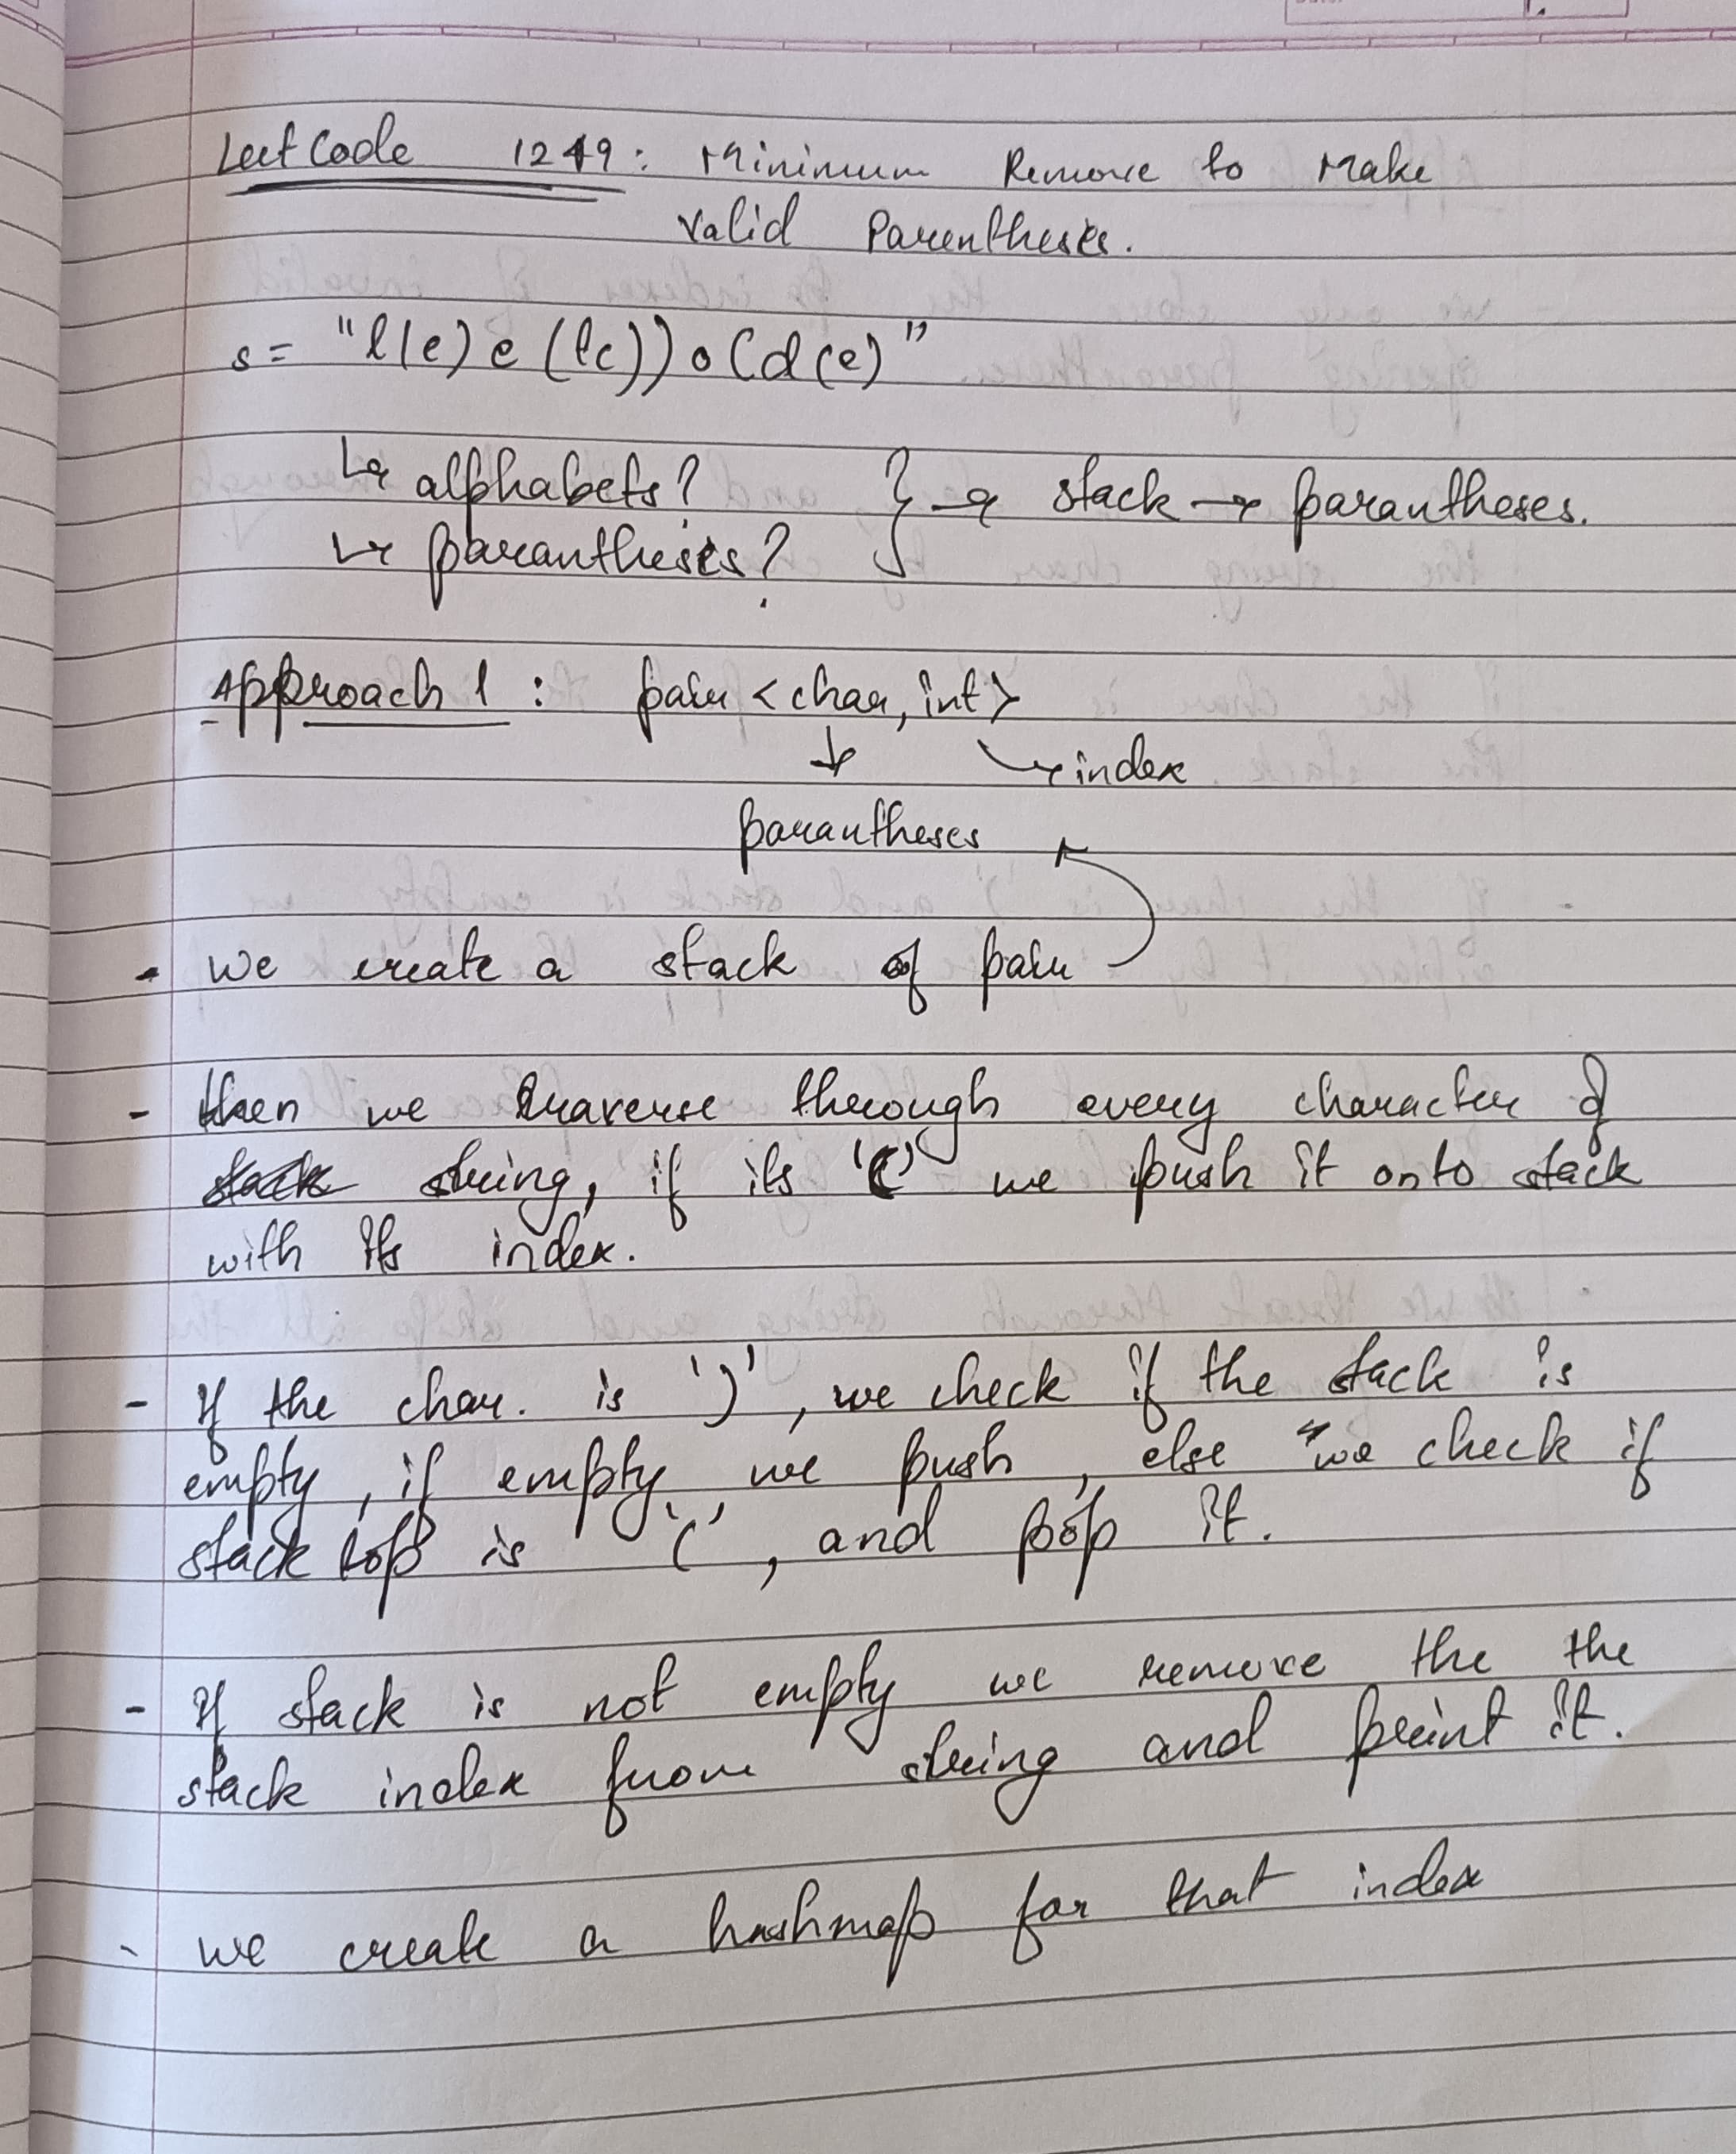 LeetCode 1249: Minimum Remove to Make
Valid Parentheses.
s = "l(e) e (lc)) o (d(e)"
↳ alphabets?
↳ parantheses? } → stack → parantheses.
Approach 1 : pair <char, int>
↓ ↘ index
parantheses
- we create a stack of pair
- then we traverse through every character of
string, if its '(' we push it onto stack
with its index.
- If the char. is ')', we check if the stack is
empty, if empty we push, else we check if
stack top is '(', and pop it.
- If stack is not empty we remove the the
stack index from string and print it.
- we create a hashmap for that index